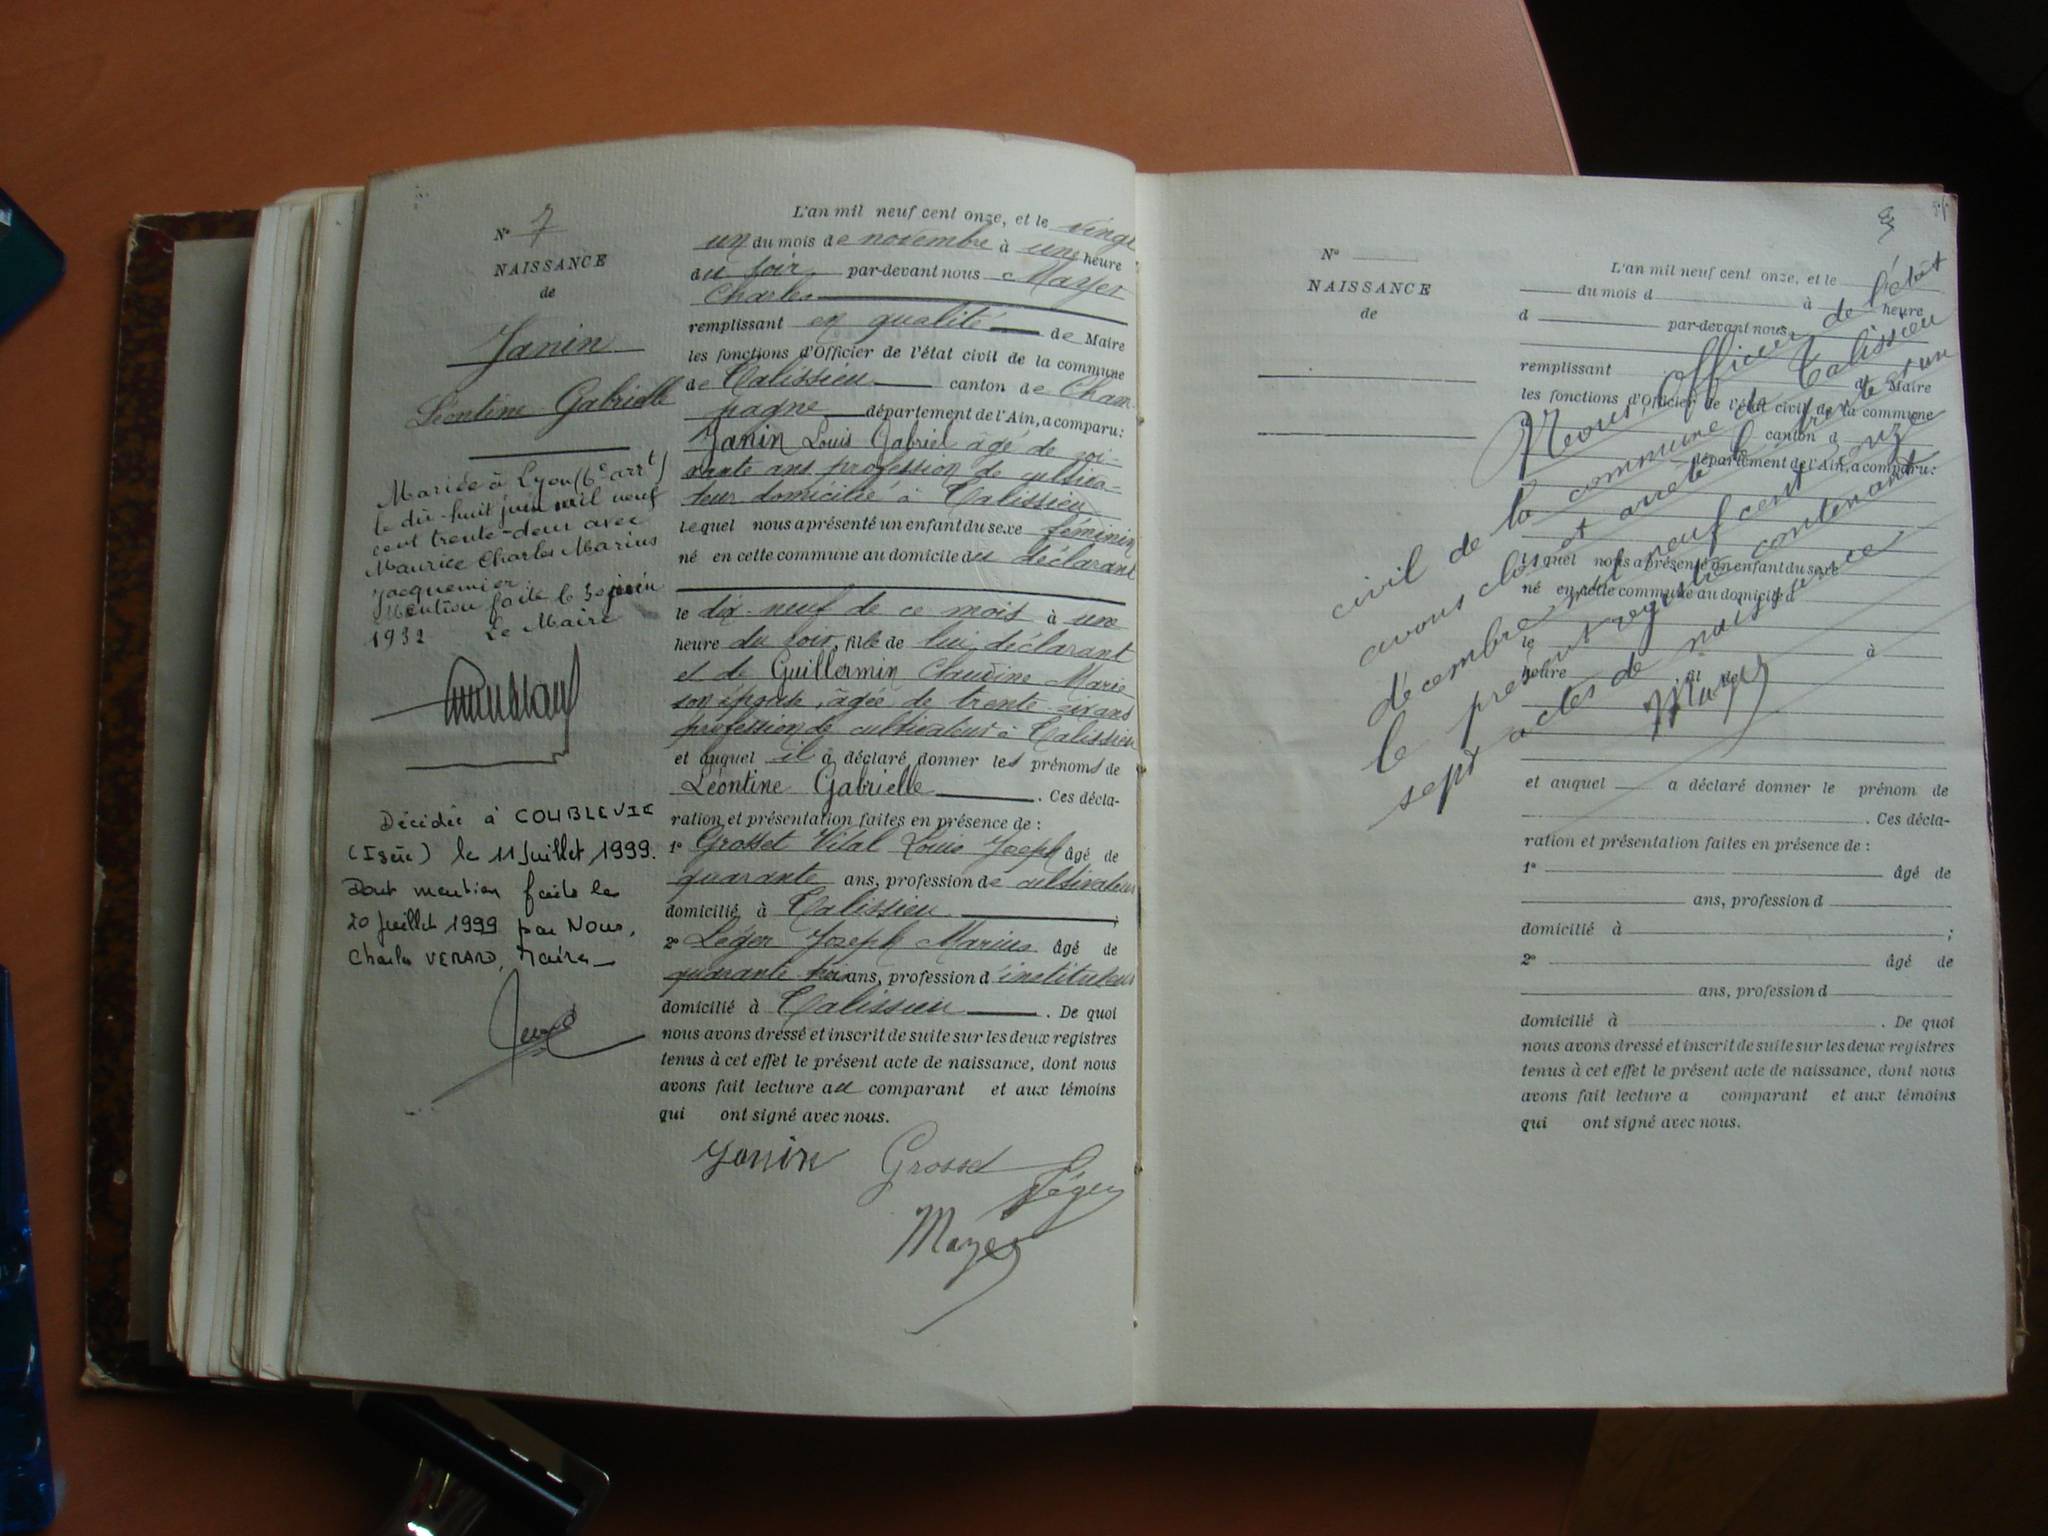 N° 7
NAISSANCE
de
Janin
Léontine Gabrielle
Mariée à Lyon (6e arrt)
le dix-huit juin mil neuf
cent trente-deux avec
Maurice Charles Marius
Jacquemier.
Mention faite le 30 juin
1932 Le Maire
Décédée à COUBLEVIE
(Isère) le 11 Juillet 1999.
Dont mention faite le
20 Juillet 1999 par Nous,
Charles VERARD, Maire
L'an mil neuf cent onze, et le vingt
un du mois de novembre à une heure
du soir, par-devant nous Mayer
Charles
remplissant en qualité de Maire
les fonctions d'Officier de l'état civil de la commune
de Talissieu canton de Cham
pagne département de l'Ain, a comparu:
Janin Louis Gabriel âgé de soi-
xante ans profession de cultiva-
teur domicilié à Talissieu
lequel nous a présenté un enfant du sexe féminin
né en cette commune au domicile du déclarant
le dix-neuf de ce mois à une
heure du soir, fille de lui déclarant
et de Guillermin Claudine Marie
son épouse, âgée de trente six ans
profession de cultivateur à Talissieu
et auquel il a déclaré donner les prénoms de
Léontine Gabrielle . Ces décla-
ration et présentation faites en présence de :
1° Grosset Vital Louis Joseph âgé de
quarante ans, profession de cultivateur
domicilié à Talissieu ;
2° Léger Joseph Marius âgé de
quarante trois ans, profession d instituteur
domicilié à Talissieu . De quoi
nous avons dressé et inscrit de suite sur les deux registres
tenus à cet effet le présent acte de naissance, dont nous
avons fait lecture au comparant et aux témoins
qui ont signé avec nous.
Janin Grosset
Léger
Mayer
N°
NAISSANCE
de
L'an mil neuf cent onze, et le
du mois d à heure
d par-devant nous
remplissant d Maire
les fonctions d'Officier de l'état civil de la commune
d canton d
département de l'Ain, a comparu:
lequel nous a présenté un enfant du sexe
né en cette commune au domicile d
le à
heure et de
et auquel a déclaré donner le prénom de
. Ces décla-
ration et présentation faites en présence de :
1° âgé de
ans, profession d
domicilié à ;
2° âgé de
ans, profession d
domicilié à . De quoi
nous avons dressé et inscrit de suite sur les deux registres
tenus à cet effet le présent acte de naissance, dont nous
avons fait lecture a comparant et aux témoins
qui ont signé avec nous.
Nous, Officier de l'état
civil de la commune de Talissieu
avons clos et arrêté le trente et un
décembre mil neuf cent onze
le présent registre contenant
sept actes de naissance
Mayer